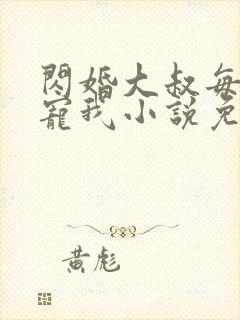 閃婚大叔每
寵我小說免
黃彪